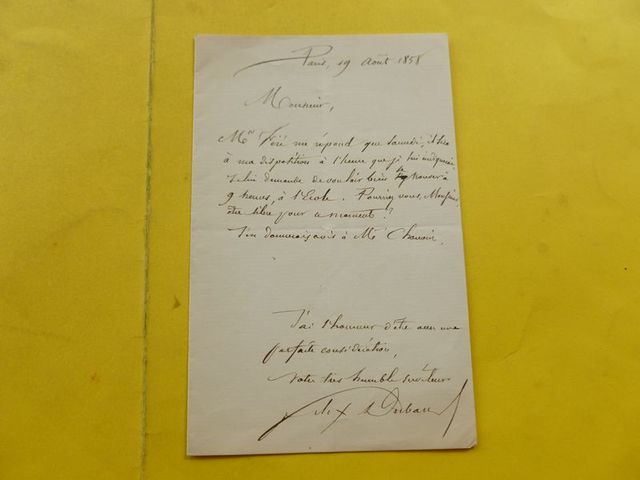 Paris, 19 Août 1858
Monsieur,
Mr me répond que Samedi, il sera
à ma disposition à l'heure que je lui indiquerai
Je lui demande de vouloir bien s'y trouver à
9 heures, à l'Ecole. Pourriez vous, Monsieur
être libre pour ce moment?
J'en donnerais avis à Mr
J'ai l'honneur d'être avec une
parfaite considération,
Votre très humble serviteur
Alex